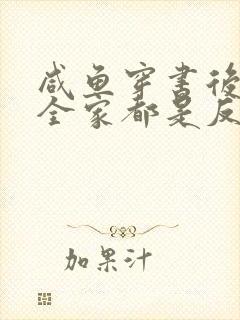 咸鱼穿書後
全家都是反
加果汁